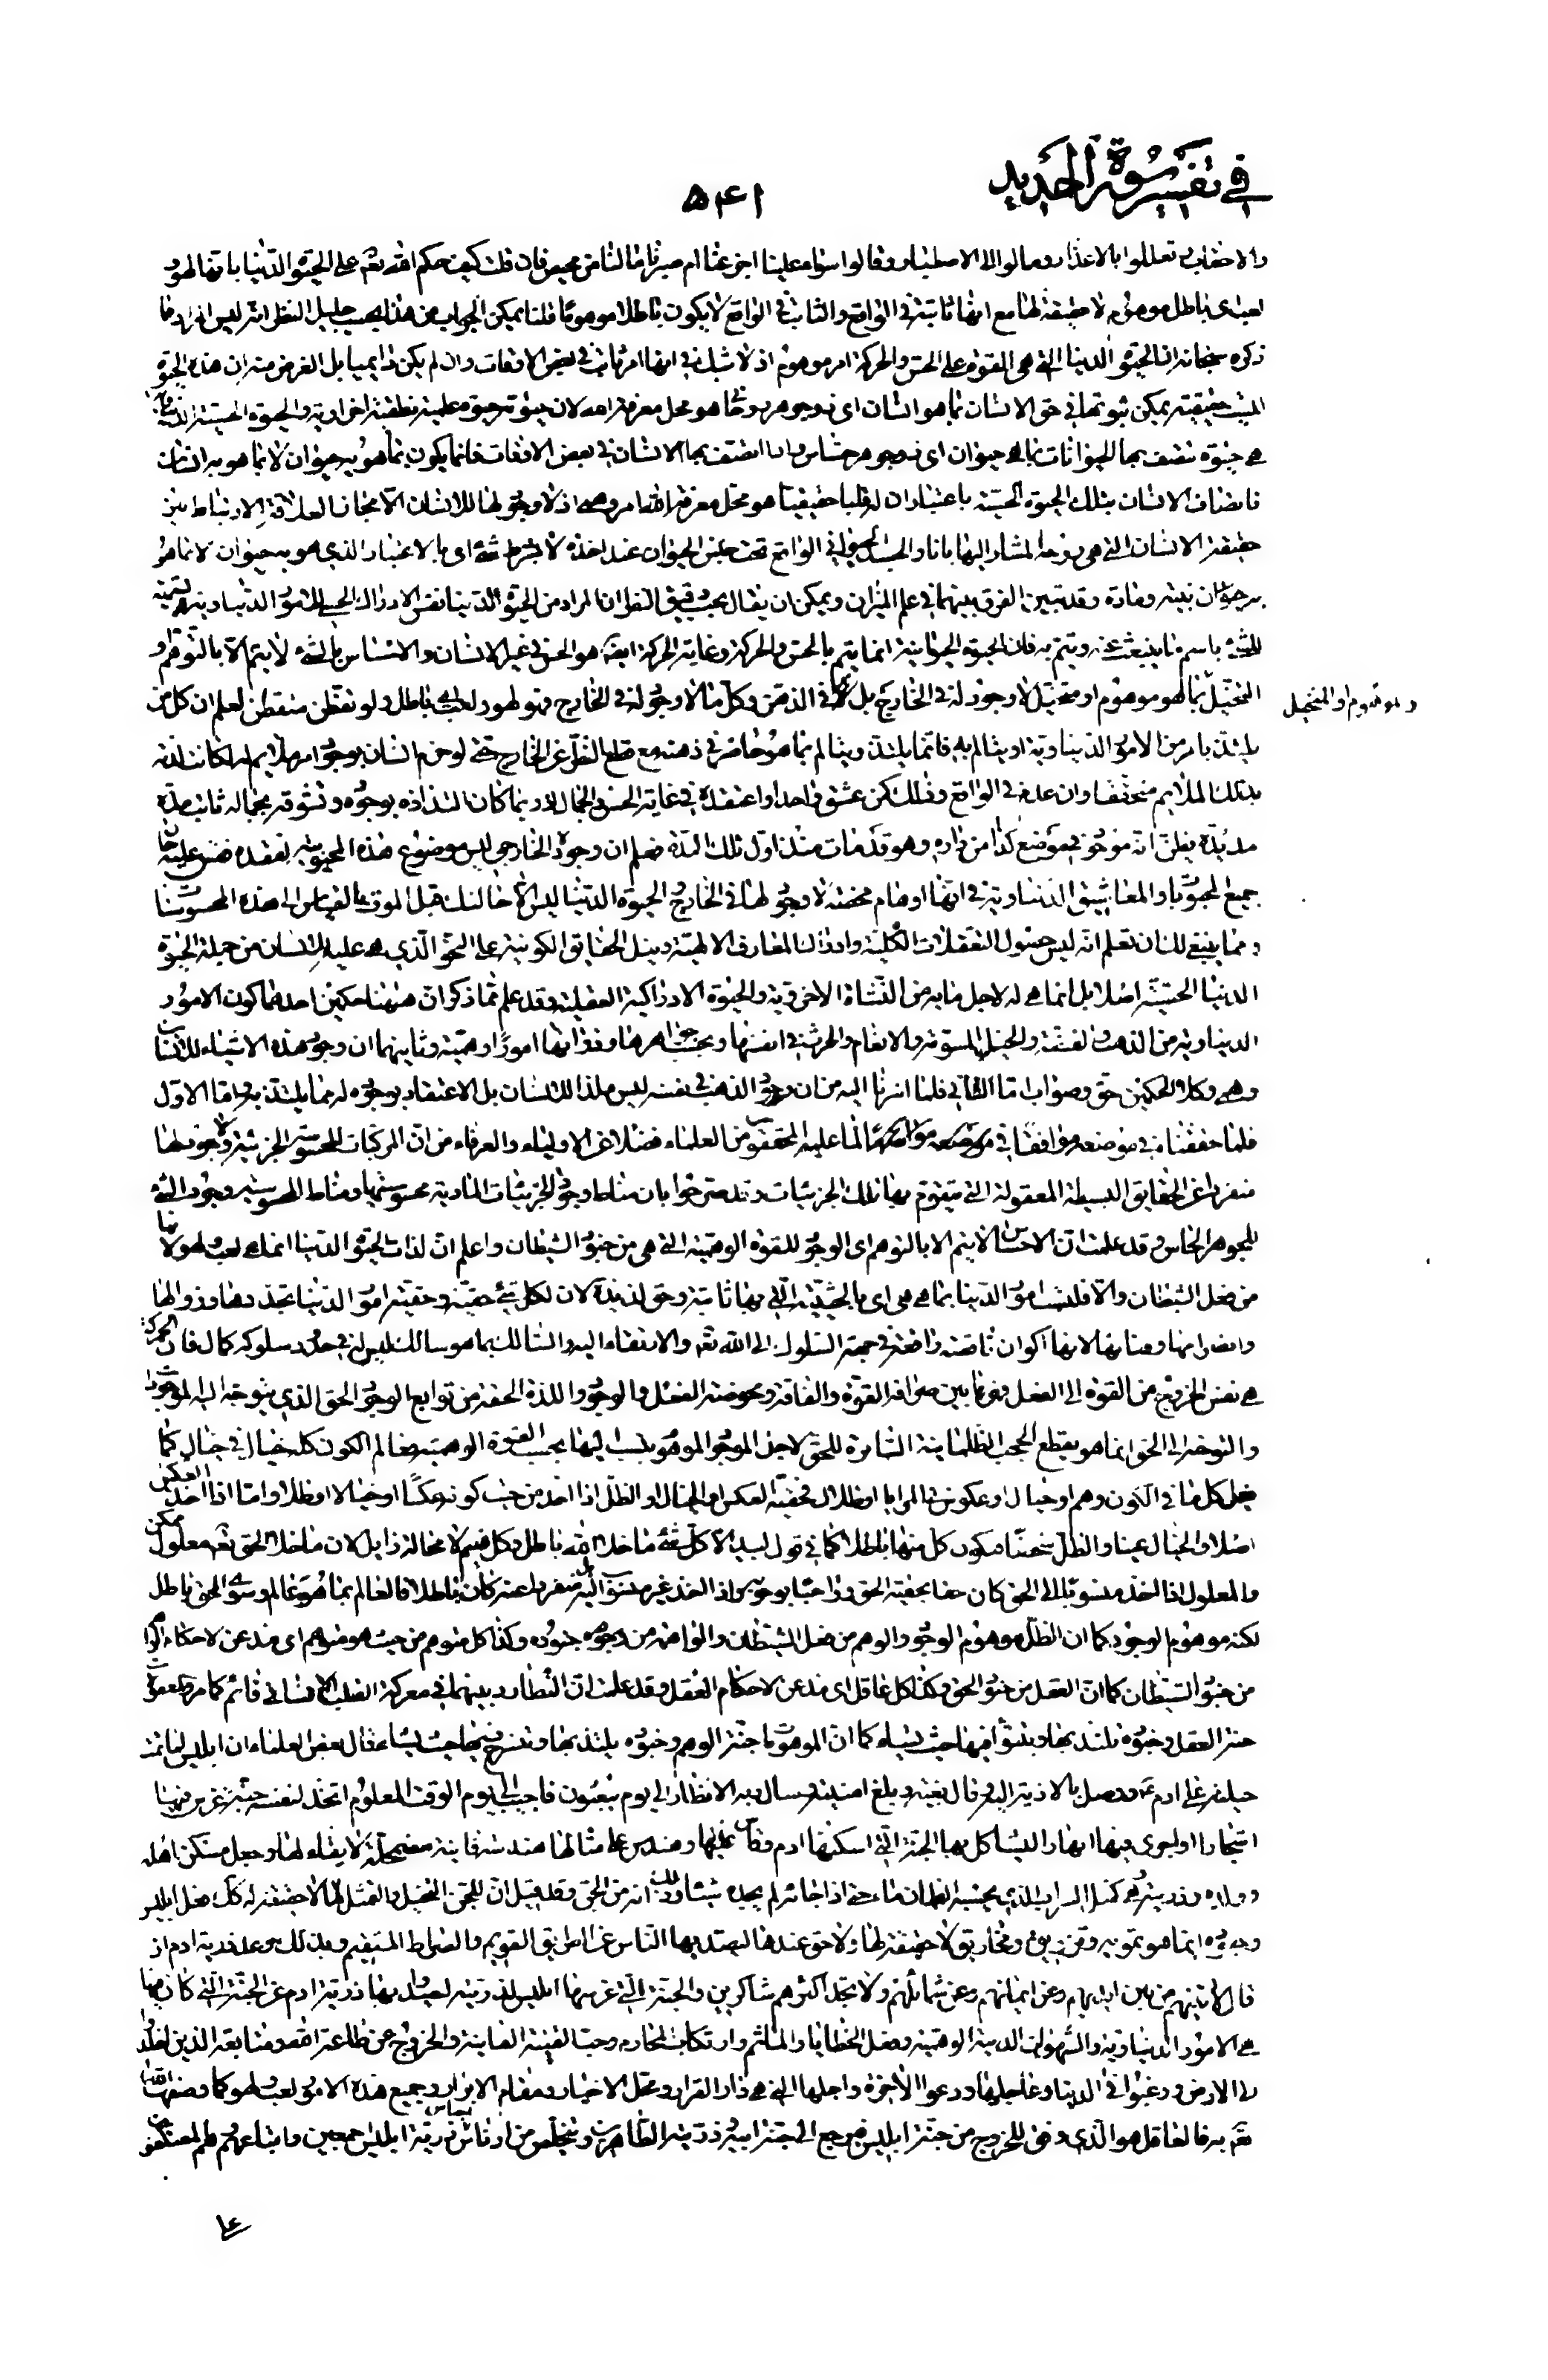 في تفسير سورة الحديد
۵۴۱
والاحقاب تعللوا بالاعذار ومالوا الى الاصطبار وقالوا سواء علينا اجزعنا ام صبرنا مالنا من محيص فان قلت كيف حكم الله تعـ على الحيوة الدنيا بانها لهو
لعب اى باطل موهوم لا حقيقة لها مع انها ثابتة في الواقع والثابت في الواقع لا يكون باطلا موهوما قلنا يمكن الجواب من هذا بحسب جليل النظر انه ليس المراد مما
ذكره سبحانه ان الحيوة الدنيا التي هي القوة على الحس والحركة امر موهوم اذ لا شك في انها امر ثابت في بعض الاوقات وان لم يكن دايميا بل الغرض منه ان هذه الحيوة
ليست حقيقية يمكن ثبوتها في حق الانسان بما هو انسان اى ذو جوهر روحانى هو محل معرفة الله لان حيوته حيوة علمية نطقية اخراوية والحيوة الحسية الدنياوية
هي حيوة تتصف بها الحيوانات بما هي حيوان اى ذو جوهر حساس واذا اتصف بها الانسان في بعض الاوقات فانما يكون بما هو به حيوان لا بما هو به انسان
فاتصاف الانسان بتلك الحيوة الحسية باعتبار ان له قلبا حقيقيا هو محل معرفة الله امر وهمى اذ لا وجود لها للانسان الا مجازا لعلاقة الارتباط بين
حقيقة الانسان التي هي روحه المشار اليها بانا والجسد الحيوانى الواقع تحت جنس الحيوان عند اخذه لا بشرط شئ اى بالاعتبار الذي هو به حيوان لا بما هو
به حيوان بنيته ومادة وقد تبين الفرق بينهما في علم الميزان ويمكن ان يقال بحسب دقيق النظر ان المراد من الحيوة الدنيا نفس الادراك الحسى للامور الدنياوية تسمية
للشئ باسم ما ينبعث عنه ويتم به فان الحيوة الحيوانية انما يتم بالحس والحركة وغاية الحركة ايضا هو الحس في غير الانسان والاحساس بالشئ لا يتم الا بالتوهم و
التخيل بما هو موهوم او متخيل لا وجود له في الخارج بل انما في الذهن وكل ما لا وجود له في الخارج فهو لهو ولعب اى باطل ولو تفطن متفطن لعلم ان كل من
والموهوم او المتخيل
يلتذ بامر من الامور الدنياوية او يتالم به فانما يلتذ ويتالم بما هو حاضر في ذهنه مع قطع النظر عن الخارج حتى لو جزم انسان بوجود امر ملايم له لكانت لذته
بذلك الملايم متحققا وان عدم في الواقع وذلك كمن عشق واحدا واعتقده في غاية الحسن والجمال وربما كان التذاذه بوجوده وتشوقه بجماله ثابت مدة
مديدة يظن انه موجود في موضع كذا من داره وهو قد مات منذ اول تلك المدة فعلم ان وجوده الخارجى ليس موضوع هذه المحبوبية لفقده فقس عليه حال
جميع المحبوبات والمعاشيق الدنياوية في انها اوهام محضة لا وجود لها في الخارج الحيوة الدنيا ليس الا حالتك قبل الموت بالقياس الى هذه المحسوسات
ومما ينبغي لك ان تعلم انه ليس حصول التعقلات الكلية وادراك المعارف الالهية ونيل الحقايق الكونية على النحو الذي هي عليه للانسان من جملة الحيوة
الدنيا الحسية اصلا بل انما هي له لاجل ما به من النشاة الاخروية والحيوة الادراكية العقلية وقد علم مما ذكر ان ههنا حكمين احدهما كون الامور
الدنياوية من الذهب والفضة والخيل المسومة والانعام والحرث في انفسها وبحسب جواهرها وذواتها امورا وهمية وثانيهما ان وجود هذه الاشياء للانسان
وهمى وكلا الحكمين حق وصواب اما الثانى فلما اشرنا اليه من ان وجود الذهب في نفسه ليس ملذا للانسان بل الاعتقاد بوجوده له مما يلتذ به واما الاول
فلما حققناه في موضعه موافقا لما عليه المحققون من العلماء فضلا عن الاولياء والعرفاء من ان المركبات المحسوسة الجزئية لا وجود لها
منفردا عن الحقايق البسيطة المعقولة التي يتقوم بها تلك الجزئيات وقد صرحوا بان مناط وجود الجزئيات المادية محسوسيتها ومناط المحسوسية وجود الشئ
للجوهر الحاس وقد علمت ان الاحساس لا يتم الا بالتوهم اى الوجود للقوة الوهمية التي هي من جنود الشيطان واعلم ان لذات الحيوة الدنيا انما هي لعب ولهو لانها
من فعل الشيطان والا فليست امور الدنيا بما هي هي اى بالحيثية التي بها ثابتة وحق لذيذة لان لكل شئ حقية وحقية امور الدنيا تجددها وزوالها
وانصرامها وفنائها لانها اكوان ناقصة واقعة في جهة السلوك الى الله تعـ والارتقاء اليه والسالك بما هو سالك ليس له في حد سلوكه كمال فان الحركة
هي نفس الخروج من القوة الى الفعل وهي ما بين صرافة القوة والفاقة ومحوضة الفعل والوجود واللذة الحقة من توابع الوجود الحق الذي يتوجه اليه الموجودات
والتوجه الى الحق انما هو بقطع الحجب الظلمانية الساترة للحق لاجل الموجود الموهوب بسببها بحسب القوة الوهمية فعالم الكون كله خيال في خيال كما
قيل كل ما في الكون وهم او خيال او عكوس في المرايا او ظلال فحقية العكس او الخيال او الظل اذا اخذ من حيث كونه عكسا او خيالا او ظلا واما اذا اخذ العكس
اصلا والخيال عينا والظل شخصا فيكون كل منها باطلا كما في قول لبيد الا كل شئ ما خلا الله باطل وكل نعيم لا محالة زايل لان ما خلا الحق تعـ معلول ممكن
والمعلول اذا اخذ منسوبا الى الحق كان حقا بحقية الحق وواجبا بوجوبه واذا اخذ غير منسوب اليه منفردا عنه كان باطلا فالعالم بما هو عالم وسوى الحق باطل
لكنه موهوم الوجود كما ان الظل موهوم الوجود والوهم من فعل الشيطان والواهمة من جنوده وكذا كل متوهم من حيث هو متوهم اى مذعن لاحكام الوهم
من جنود الشيطان كما ان العقل من جنود الحق وكذا كل عاقل اى مذعن لاحكام العقل وقد علمت ان التطارد بينهما في معركة القلب الانسانى قائم كما مر والمعقولات
جنة العقل وجنوده يلتذ بها ويتبوأ فيها حيث يشاء كما ان الموهومات جنة الوهم وجنوده يلتذ بها وتسرح فيها حيث يشاء قال بعض العلماء ان ابليس لما تمت
حيلته على ادم عـ ووصل بالاذية اليه وقال بغيته وبلغ امنيته وسال ربه الانظار الى يوم يبعثون فاجيب الى يوم الوقت المعلوم اتخذ لنفسه جنة غرس فيها
اشجارا واجرى فيها انهارا ليشاكل بها الجنة التي اسكنها ادم وقاس عليها وهندس على مثالها هندسة فانية مضمحلة لا بقاء لها وجعل مسكن اهله
وولده وذريته وهي كمثل السراب الذي يحسبه الظمان ماء حتى اذا جائه لم يجده شيئا وذلك انه من الجن وقد قيل ان للجن التخيل والتمثل لما لا حقيقة له كذلك فعل ابليس
وجنوده انما هو تمويه وتزويق ومخاريق لا حقيقة لها ولا حق عندها ليصد بها الناس عن الطريق القويم والصراط المستقيم وبذلك وعد ذرية ادم اذ
قال لاتينهم من بين ايديهم وعن ايمانهم وعن شمائلهم ولا تجد اكثرهم شاكرين والجنة التي غرسها ابليس لذريته ليصد بها ذرية ادم عن الجنة التي كان فيها
هي الامور الدنياوية والشهوات الدنية الوهمية وفعل الخطايا والماثم وارتكاب المحارم وحب القينة الفانية والخروج عن طاعة الله ومتابعة الذين اخلدوا
الى الارض ورغبوا في الدنيا وعاجلها ودعوا الاخرة واجلها التي هي دار القرار ومحل الاخيار ومقام الابرار وجميع هذه الامور لعب ولهو كما وصفها الله
تعـ به فالعاقل هو الذي وفق للخروج من جنة ابليس فيرجع الى جنة ابيه وذريته الطاهرين ويتخلص من ارفاس انجاس ذرية ابليس اجمعين واتباعهم